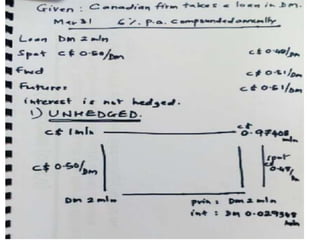 Given : Canadian firm takes a loan in DM.
Mar 31 6 %. p.a. compounded annually
Loan DM 2 mln
Spot C$ 0.50/DM C$ 0.49/DM
Fwd C$ 0.51/DM
Futures C$ 0.51/DM
interest is not hedged.
1) UNHEDGED.
C$ 1 mln C$ 0.97408 mln
C$ 0.50/DM spot C$ 0.48/
DM 2 mln prin : DM 2 mln
int : DM 0.029348 mln